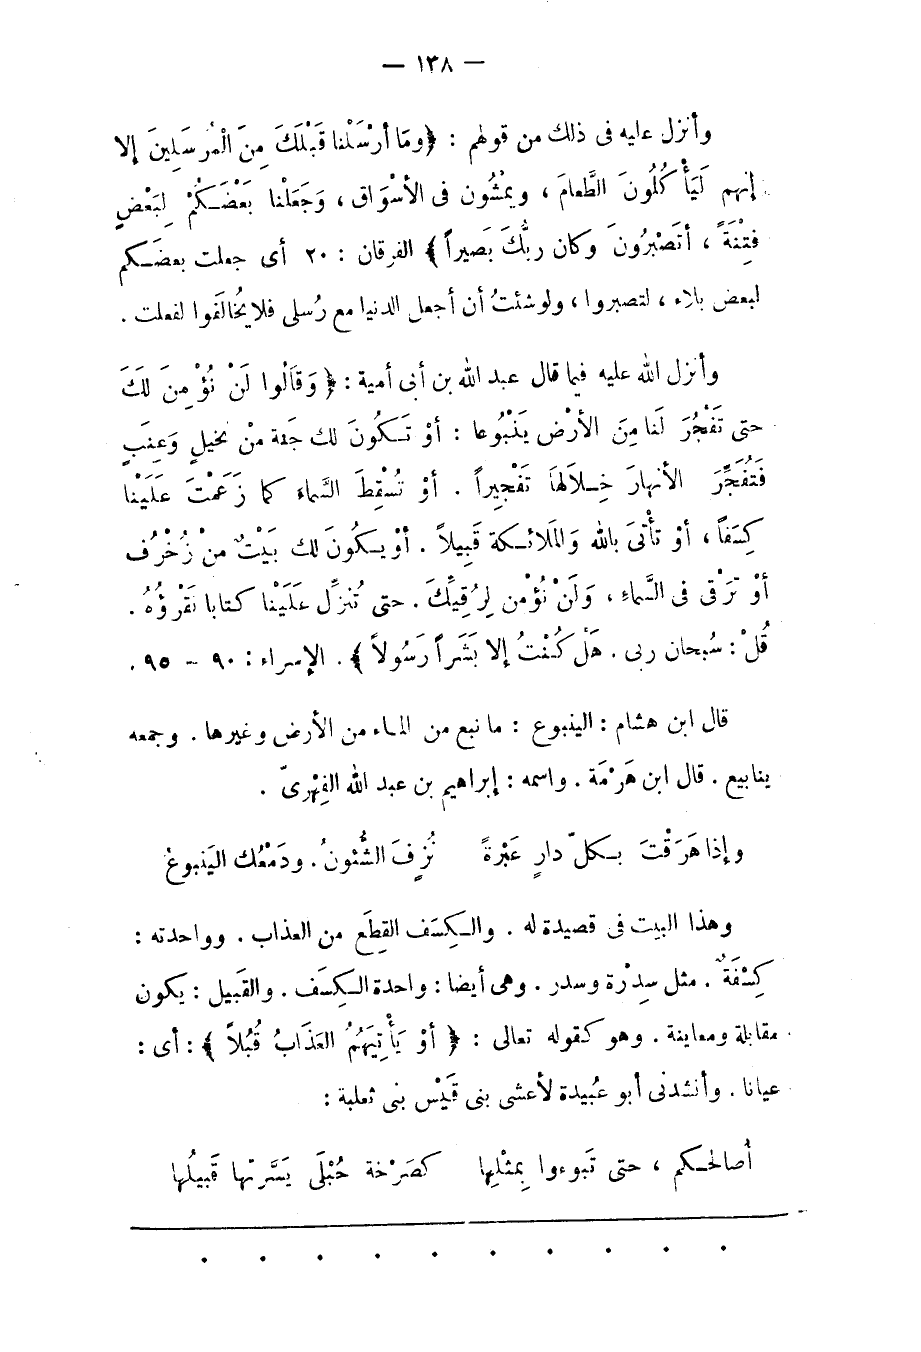 — ١٣٨ —
وأنزل عليه فى ذلك من قولهم : ﴿وَمَا أرْسَلْنا قَبْلَكَ مِنَ الْمُرْسَلِينَ إلا
إنهم لَيَأْكُلُونَ الطَّعامَ ، ويمْشُون فى الأسْوَاق ، وَجَعَلْنا بَعْضَكُمْ لِبَعْضٍ
فِتْنَةً ، أتَصْبِرُونَ وكان ربُّكَ بَصيراً﴾ الفرقان : ٢٠ أى جعلت بعضَكم
لبعض بلاء ، لتصبروا ، ولو شئتُ أن أجعل الدنيا مع رُسلى فلا يُخالَفوا لفعلت .
وأنزل الله عليه فيما قال عبد الله بن أبى أمية : ﴿ وَقَالُوا لَنْ نُؤْمِنَ لَكَ
حتى تَفْجُرَ لَنا مِنَ الأرْض يَنْبُوعا : أوْ تَكُونَ لك جَنة مِنْ نخيلٍ وَعِنَبٍ
فَتُفَجِّرَ الأنهارَ خِلاَلهاَ تَفْجِيراً . أوْ تُسْقِطَ السَّماء كما زَعَمْتَ عَلَيْنا
كِسَفاً ، أوْ تأْتىَ بالله وَالمَلائكة قَبِيلاً . أوْ يكُونَ لك بَيْتٌ مِنْ زُخْرُف
أوْ تَرْقى فى السَّماءِ ، وَلَنْ نُؤْمن لِرُقِيِّكَ . حتى تُنزِّل عَلَيْنا كتابا نَقْرؤُهُ .
قُلْ : سُبحان ربى . هَلْ كُنْتُ إلا بَشَراً رَسُولاً ﴾ . الإسراء : ٩٠ – ٩٥ .
قال ابن هشام : الينبوع : ما نبع من الماء من الأرض وغيرها . وجمعه
ينابيع . قال ابن هَرْمَة . واسمه : إبراهيم بن عبد الله الفِهْرىّ .
وإذا هَرَقْتَ بكلّ دارٍ عَبْرَةً نُزِفَ الشُّئونُ . ودَمْعُك اليَنبوعُ
وهذا البيت فى قصيدة له . والكِسَف القِطَع من العذاب . وواحدته :
كِسْفَةٌ . مثل سِدْرة وسدر . وهى أيضا : واحدة الكِسَف . والقَبيل : يكون
مقابلة ومعاينة . وهو كقوله تعالى : ﴿ أوْ يَأْتِيَهُمُ العَذَابُ قُبُلاً ﴾ : أى :
عيانا . وأنشدنى أبو عُبيدة لأعشى بنى قَيْس بنى ثعلبة :
أصالحكم ، حتى تَبوءوا بِمثْلِها كصَرْخة حُبْلَى يَسَّرتها قَبيلُها